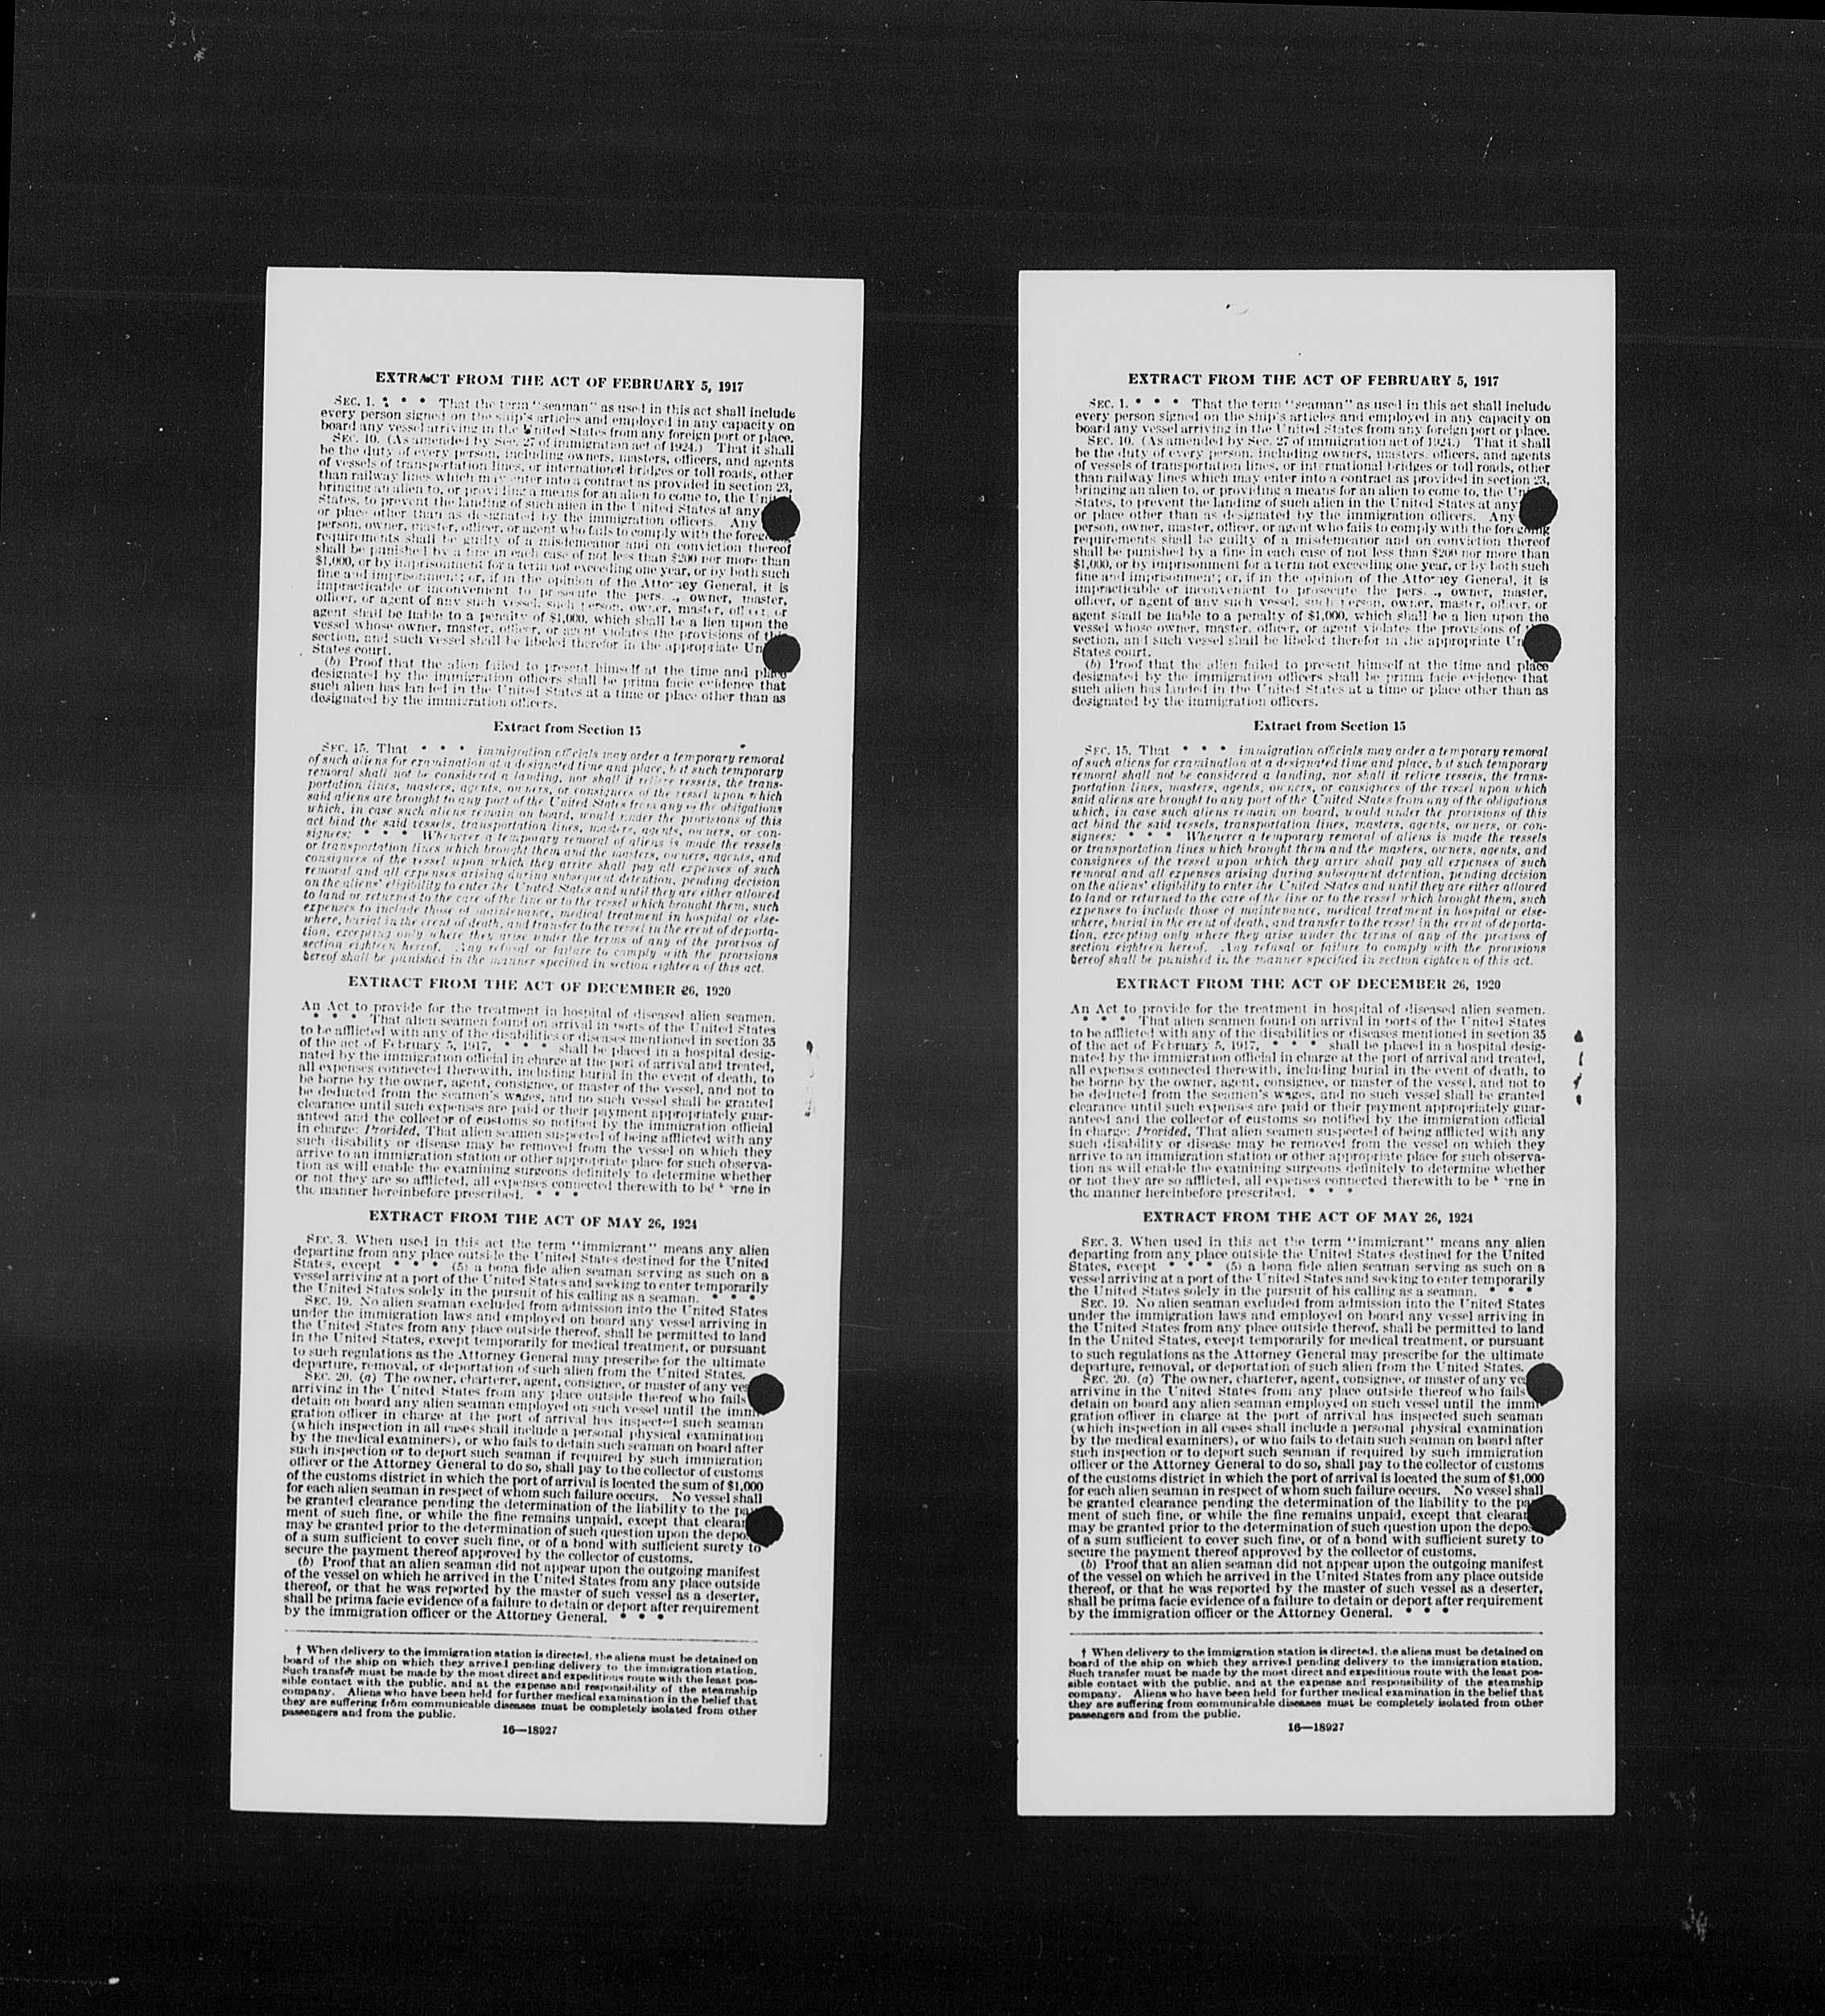 EXTRACT FROM THE ACT OF FEBRUARY 5, 1917
SEC. 1. * * * That the term "seaman" as used in this act shall include
every person signed on the ship's articles and employed in any capacity on
board any vessel arriving in the United States from any foreign port or place.
SEC. 10. (As amended by Sec. 27 of immigration act of 1924.) That it shall
be the duty of every person, including owners, masters, officers, and agents
of vessels of transportation lines, or international bridges or toll roads, other
than railway lines which may enter into a contract as provided in section 23,
bringing an alien to, or providing a means for an alien to come to, the
States, to prevent the landing of such alien in the United States at any
or place other than as designated by the immigration officers. Any
person, owner, master, officer, or agent who fails to comply with the foregoing
requirements shall be guilty of a misdemeanor and on conviction thereof
shall be punished by a fine in each case of not less than $200 nor more than
$1,000, or by imprisonment for a term not exceeding one year, or by both such
fine and imprisonment; or, if in the opinion of the Attorney General, it is
impracticable or inconvenient to prosecute the owner, master,
officer, or agent of any such vessel, such person, owner, master, officer, or
agent shall be liable to a penalty of $1,000, which shall be a lien upon the
vessel whose owner, master, officer, or agent violates the provisions of this
section, and such vessel shall be libeled therefor in the appropriate
States court.
(b) Proof that the alien failed to present himself at the time and place
designated by the immigration officers shall be prima facie evidence that
such alien has landed in the United States at a time or place other than as
designated by the immigration officers.
Extract from Section 15
SEC. 15. That * * * immigration officials may order a temporary removal
of such aliens for examination at a designated time and place, but such temporary
removal shall not be considered a landing, nor shall it relieve vessels, the trans-
portation lines, masters, agents, owners, or consignees of the vessel upon which
said aliens are brought to any port of the United States from any of the obligations
which, in case such aliens remain on board, would under the provisions of this
act bind the said vessels, transportation lines, masters, agents, owners, or con-
signees: * * * Whenever a temporary removal of aliens is made the vessels
or transportation lines which brought them and the masters, owners, agents, and
consignees of the vessel upon which they arrive shall pay all expenses of such
removal and all expenses arising during subsequent detention, pending decision
on the aliens' eligibility to enter the United States and until they are either allowed
to land or returned to the care of the line or to the vessel which brought them, such
expenses to include those of maintenance, medical treatment in hospital or else-
where, burial in the event of death, and transfer to the vessel in the event of deporta-
tion, excepting only where they arise under the terms of any of the provisos of
section eighteen hereof. Any refusal or failure to comply with the provisions
hereof shall be punished in the manner specified in section eighteen of this act.
EXTRACT FROM THE ACT OF DECEMBER 26, 1920
An Act to provide for the treatment in hospital of diseased alien seamen.
* * * That alien seamen found on arrival in ports of the United States
to be afflicted with any of the disabilities or diseases mentioned in section 35
of the act of February 5, 1917, * * * shall be placed in a hospital desig-
nated by the immigration official in charge at the port of arrival and treated,
all expenses connected therewith, including burial in the event of death, to
be borne by the owner, agent, consignee, or master of the vessel, and not to
be deducted from the seamen's wages, and no such vessel shall be granted
clearance until such expenses are paid or their payment appropriately guar-
anteed and the collector of customs so notified by the immigration official
in charge: Provided, That alien seamen suspected of being afflicted with any
such disability or disease may be removed from the vessel on which they
arrive to an immigration station or other appropriate place for such observa-
tion as will enable the examining surgeons definitely to determine whether
or not they are so afflicted, all expenses connected therewith to be borne in
the manner hereinbefore prescribed. * * *
EXTRACT FROM THE ACT OF MAY 26, 1924
SEC. 3. When used in this act the term "immigrant" means any alien
departing from any place outside the United States destined for the United
States, except * * * (5) a bona fide alien seaman serving as such on a
vessel arriving at a port of the United States and seeking to enter temporarily
the United States solely in the pursuit of his calling as a seaman. * * *
SEC. 19. No alien seaman excluded from admission into the United States
under the immigration laws and employed on board any vessel arriving in
the United States from any place outside thereof, shall be permitted to land
in the United States, except temporarily for medical treatment, or pursuant
to such regulations as the Attorney General may prescribe for the ultimate
departure, removal, or deportation of such alien from the United States.
SEC. 20. (a) The owner, charterer, agent, consignee, or master of any
arriving in the United States from any place outside thereof who fails
detain on board any alien seaman employed on such vessel until the immi-
gration officer in charge at the port of arrival has inspected such seaman
(which inspection in all cases shall include a personal physical examination
by the medical examiners), or who fails to detain such seaman on board after
such inspection or to deport such seaman if required by such immigration
officer or the Attorney General to do so, shall pay to the collector of customs
of the customs district in which the port of arrival is located the sum of $1,000
for each alien seaman in respect of whom such failure occurs. No vessel shall
be granted clearance pending the determination of the liability to the pay-
ment of such fine, or while the fine remains unpaid, except that
may be granted prior to the determination of such question upon the
of a sum sufficient to cover such fine, or of a bond with sufficient surety to
secure the payment thereof approved by the collector of customs.
(b) Proof that an alien seaman did not appear upon the outgoing manifest
of the vessel on which he arrived in the United States from any place outside
thereof, or that he was reported by the master of such vessel as a deserter,
shall be prima facie evidence of a failure to detain or deport after requirement
by the immigration officer or the Attorney General. * * *
† When delivery to the immigration station is directed, the aliens must be detained on
board of the ship on which they arrived pending delivery to the immigration station.
Such transfer must be made by the most direct and expeditious route with the least pos-
sible contact with the public, and at the expense and responsibility of the steamship
company. Aliens who have been held for further medical examination in the belief that
they are suffering from communicable diseases must be completely isolated from other
passengers and from the public.
16—18927
EXTRACT FROM THE ACT OF FEBRUARY 5, 1917
SEC. 1. * * * That the term "seaman" as used in this act shall include
every person signed on the ship's articles and employed in any capacity on
board any vessel arriving in the United States from any foreign port or place.
SEC. 10. (As amended by Sec. 27 of immigration act of 1924.) That it shall
be the duty of every person, including owners, masters, officers, and agents
of vessels of transportation lines, or international bridges or toll roads, other
than railway lines which may enter into a contract as provided in section 23,
bringing an alien to, or providing a means for an alien to come to, the
States, to prevent the landing of such alien in the United States at any
or place other than as designated by the immigration officers. Any
person, owner, master, officer, or agent who fails to comply with the foregoing
requirements shall be guilty of a misdemeanor and on conviction thereof
shall be punished by a fine in each case of not less than $200 nor more than
$1,000, or by imprisonment for a term not exceeding one year, or by both such
fine and imprisonment; or, if in the opinion of the Attorney General, it is
impracticable or inconvenient to prosecute the owner, master,
officer, or agent of any such vessel, such person, owner, master, officer, or
agent shall be liable to a penalty of $1,000, which shall be a lien upon the
vessel whose owner, master, officer, or agent violates the provisions of
section, and such vessel shall be libeled therefor in the appropriate
States court.
(b) Proof that the alien failed to present himself at the time and place
designated by the immigration officers shall be prima facie evidence that
such alien has landed in the United States at a time or place other than as
designated by the immigration officers.
Extract from Section 15
SEC. 15. That * * * immigration officials may order a temporary removal
of such aliens for examination at a designated time and place, but such temporary
removal shall not be considered a landing, nor shall it relieve vessels, the trans-
portation lines, masters, agents, owners, or consignees of the vessel upon which
said aliens are brought to any port of the United States from any of the obligations
which, in case such aliens remain on board, would under the provisions of this
act bind the said vessels, transportation lines, masters, agents, owners, or con-
signees: * * * Whenever a temporary removal of aliens is made the vessels
or transportation lines which brought them and the masters, owners, agents, and
consignees of the vessel upon which they arrive shall pay all expenses of such
removal and all expenses arising during subsequent detention, pending decision
on the aliens' eligibility to enter the United States and until they are either allowed
to land or returned to the care of the line or to the vessel which brought them, such
expenses to include those of maintenance, medical treatment in hospital or else-
where, burial in the event of death, and transfer to the vessel in the event of deporta-
tion, excepting only where they arise under the terms of any of the provisos of
section eighteen hereof. Any refusal or failure to comply with the provisions
hereof shall be punished in the manner specified in section eighteen of this act.
EXTRACT FROM THE ACT OF DECEMBER 26, 1920
An Act to provide for the treatment in hospital of diseased alien seamen.
* * * That alien seamen found on arrival in ports of the United States
to be afflicted with any of the disabilities or diseases mentioned in section 35
of the act of February 5, 1917, * * * shall be placed in a hospital desig-
nated by the immigration official in charge at the port of arrival and treated,
all expenses connected therewith, including burial in the event of death, to
be borne by the owner, agent, consignee, or master of the vessel, and not to
be deducted from the seamen's wages, and no such vessel shall be granted
clearance until such expenses are paid or their payment appropriately guar-
anteed and the collector of customs so notified by the immigration official
in charge: Provided, That alien seamen suspected of being afflicted with any
such disability or disease may be removed from the vessel on which they
arrive to an immigration station or other appropriate place for such observa-
tion as will enable the examining surgeons definitely to determine whether
or not they are so afflicted, all expenses connected therewith to be borne in
the manner hereinbefore prescribed. * * *
EXTRACT FROM THE ACT OF MAY 26, 1924
SEC. 3. When used in this act the term "immigrant" means any alien
departing from any place outside the United States destined for the United
States, except * * * (5) a bona fide alien seaman serving as such on a
vessel arriving at a port of the United States and seeking to enter temporarily
the United States solely in the pursuit of his calling as a seaman. * * *
SEC. 19. No alien seaman excluded from admission into the United States
under the immigration laws and employed on board any vessel arriving in
the United States from any place outside thereof, shall be permitted to land
in the United States, except temporarily for medical treatment, or pursuant
to such regulations as the Attorney General may prescribe for the ultimate
departure, removal, or deportation of such alien from the United States.
SEC. 20. (a) The owner, charterer, agent, consignee, or master of any
arriving in the United States from any place outside thereof who fails
detain on board any alien seaman employed on such vessel until the immi-
gration officer in charge at the port of arrival has inspected such seaman
(which inspection in all cases shall include a personal physical examination
by the medical examiners), or who fails to detain such seaman on board after
such inspection or to deport such seaman if required by such immigration
officer or the Attorney General to do so, shall pay to the collector of customs
of the customs district in which the port of arrival is located the sum of $1,000
for each alien seaman in respect of whom such failure occurs. No vessel shall
be granted clearance pending the determination of the liability to the pay-
ment of such fine, or while the fine remains unpaid, except that
may be granted prior to the determination of such question upon the
of a sum sufficient to cover such fine, or of a bond with sufficient surety to
secure the payment thereof approved by the collector of customs.
(b) Proof that an alien seaman did not appear upon the outgoing manifest
of the vessel on which he arrived in the United States from any place outside
thereof, or that he was reported by the master of such vessel as a deserter,
shall be prima facie evidence of a failure to detain or deport after requirement
by the immigration officer or the Attorney General. * * *
† When delivery to the immigration station is directed, the aliens must be detained on
board of the ship on which they arrived pending delivery to the immigration station.
Such transfer must be made by the most direct and expeditious route with the least pos-
sible contact with the public, and at the expense and responsibility of the steamship
company. Aliens who have been held for further medical examination in the belief that
they are suffering from communicable diseases must be completely isolated from other
passengers and from the public.
16—18927